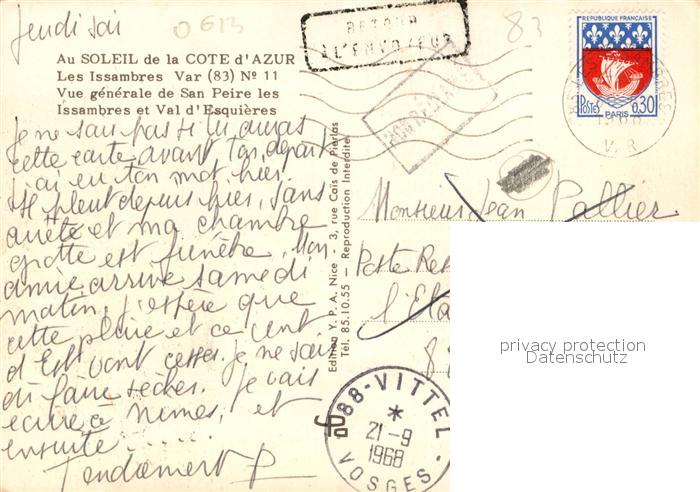 Jeudi soir
0613
83
RETOUR
A L'ENVOYEUR
Au SOLEIL de la COTE d'AZUR
Les Issambres Var (83) Nº 11
Vue générale de San Peire les
Issambres et Val d'Esquières
REPUBLIQUE FRANÇAISE
POSTES
0,30
PARIS
Je ne sais pas si tu auras
cette carte avant ton départ
J'ai eu ton mot hier.
Il pleut depuis hier, sans
arrête et ma chambre
grotte est funèbre. Mon
amie arrive samedi
matin, j'espère que
cette pluie et ce vent
d'Est vont cesser. Je ne sais
où faire sécher. Je vais
écrire à Nîmes, et
ensuite .....
Tendrement P
Edition Y. P. A. Nice - 3, rue Cais de Pierlas
Tél. 85.10.55 - Reproduction Interdite
Monsieur Jean Pallier
Poste Res
l'Eta
8
88-VITTEL
21-9
1968
VOSGES
privacy protection
Datenschutz